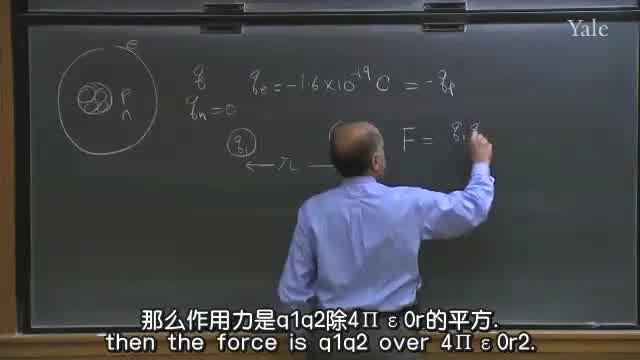 Yale
e
p
n
q
qₑ = -1.6 × 10⁻¹⁹ C = -qₚ
qₙ = 0
q₁
r
F = q₁q
那么作用力是q1q2除4Πε0r的平方.
then the force is q1q2 over 4Πε0r2.